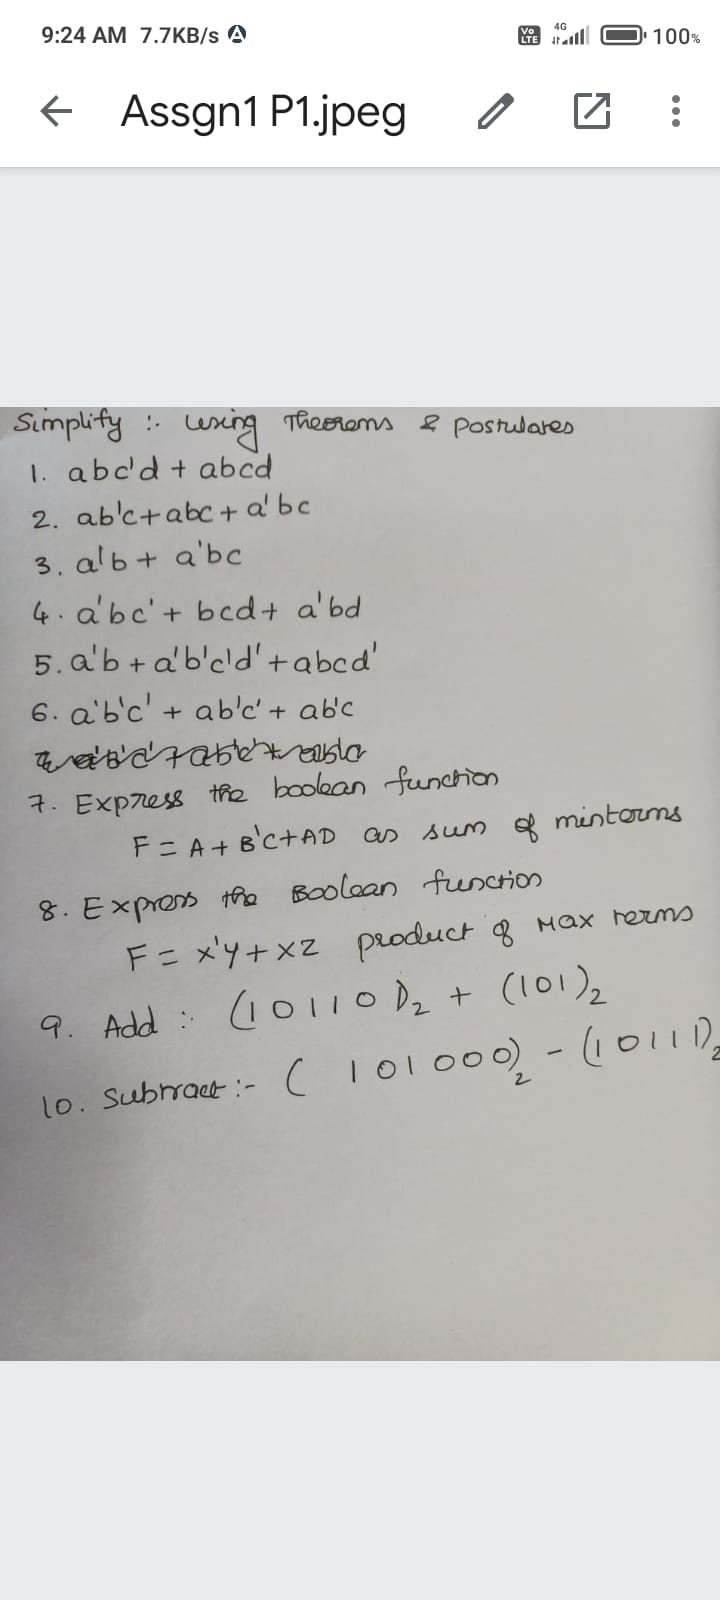 9:24 AM 7.7KB/s
Vo LTE 4G 100%
Assgn1 P1.jpeg
Simplify :. using Theorems & Postulates
1. abc'd + abcd
2. ab'c+abc + a'bc
3. a'b + a'bc
4. a'bc' + bcd + a'bd
5. a'b + a'b'c'd' + abcd'
6. a'b'c' + ab'c' + ab'c
7. Express the boolean function
F = A + B'C+AD as sum of minterms
8. Express the Boolean function
F = x'y + xz product of Max terms
9. Add :. (10110)2 + (101)2
10. Subtract :- ( 101000)2 - (10111)2